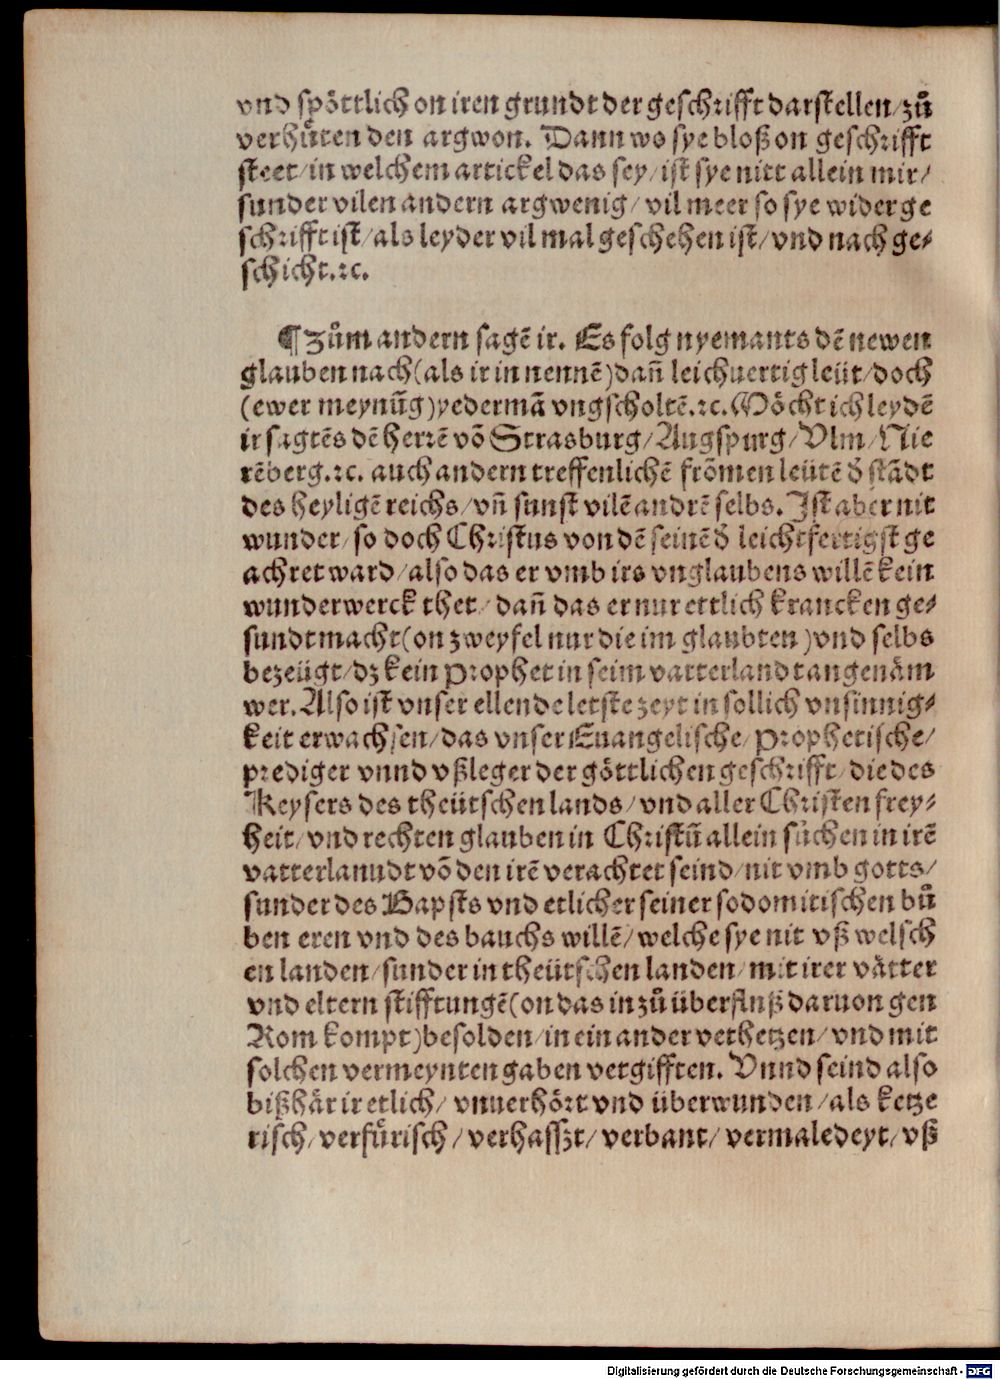 vnd spöttlich on iren grundt der geschrifft darstellen/zuͦ
verhuͤten den argwon. Dann wo sye bloß on geschrifft
steet/in welchem artickel das sey/ist sye nitt allein mir/
sunder vilen andern argwenig/vil meer so sye wider ge
schrifft ist/als leyder vil mal geschehen ist/vnd nach ge⸗
schicht.ꝛc.
¶Zuͦm andern sagē ir. Es folg nyemants dē newen
glauben nach(als ir in nennē)dañ leichuertig leüt/doch
(ewer meynũg)yedermā vngscholtē.ꝛc.Möcht ich leydē
ir sagtēs dē herrē võ Strasburg/Augspurg/Vlm/Nie
rēberg.ꝛc. auch andern treffenlichē frõmen leütē d̕ städt
des heyligē reichs/vñ sunst vilē andrē selbs. Ist aber nit
wunder/so doch Christus von dē seinē d̕ leichtfertigst ge
achtet ward/also das er vmb irs vnglaubens willē kein
wunderwerck thet/dañ das er nur ettlich krancken ge⸗
sundt macht(on zweyfel nur die im glaubten)vnd selbs
bezeügt/dz kein prophet in seim vatterlandt angenäm
wer. Also ist vnser ellende letste zeyt in sollich vnsinnig⸗
keit erwachsen/das vnser Euangelische/prophetische/
prediger vnnd vßleger der göttlichen geschrifft/die des
Keysers des theütschen lands/vnd aller Christen frey⸗
heit/vnd rechten glauben in Christũ allein suͦchen in irē
vatterlanndt võ den irē verachtet seind/nit vmb gotts/
sunder des Bapsts vnd etlicher seiner sodomitischen buͦ
ben eren vnd des bauchs willē/welche sye nit vß welsch
en landen/sunder in theütschen landen/mit irer vätter
vnd eltern stifftungē(on das in zuͦ überfluß daruon gen
Rom kompt)besolden/in ein ander verhetzen/vnd mit
solchen vermeynten gaben vergifften. Vnnd seind also
bißhär ir etlich/vnuerhört vnd überwunden/als ketze
risch/verfuͤrisch/verhasszt/verbant/vermaledeyt/vß
Digitalisierung gefördert durch die Deutsche Forschungsgemeinschaft - DFG